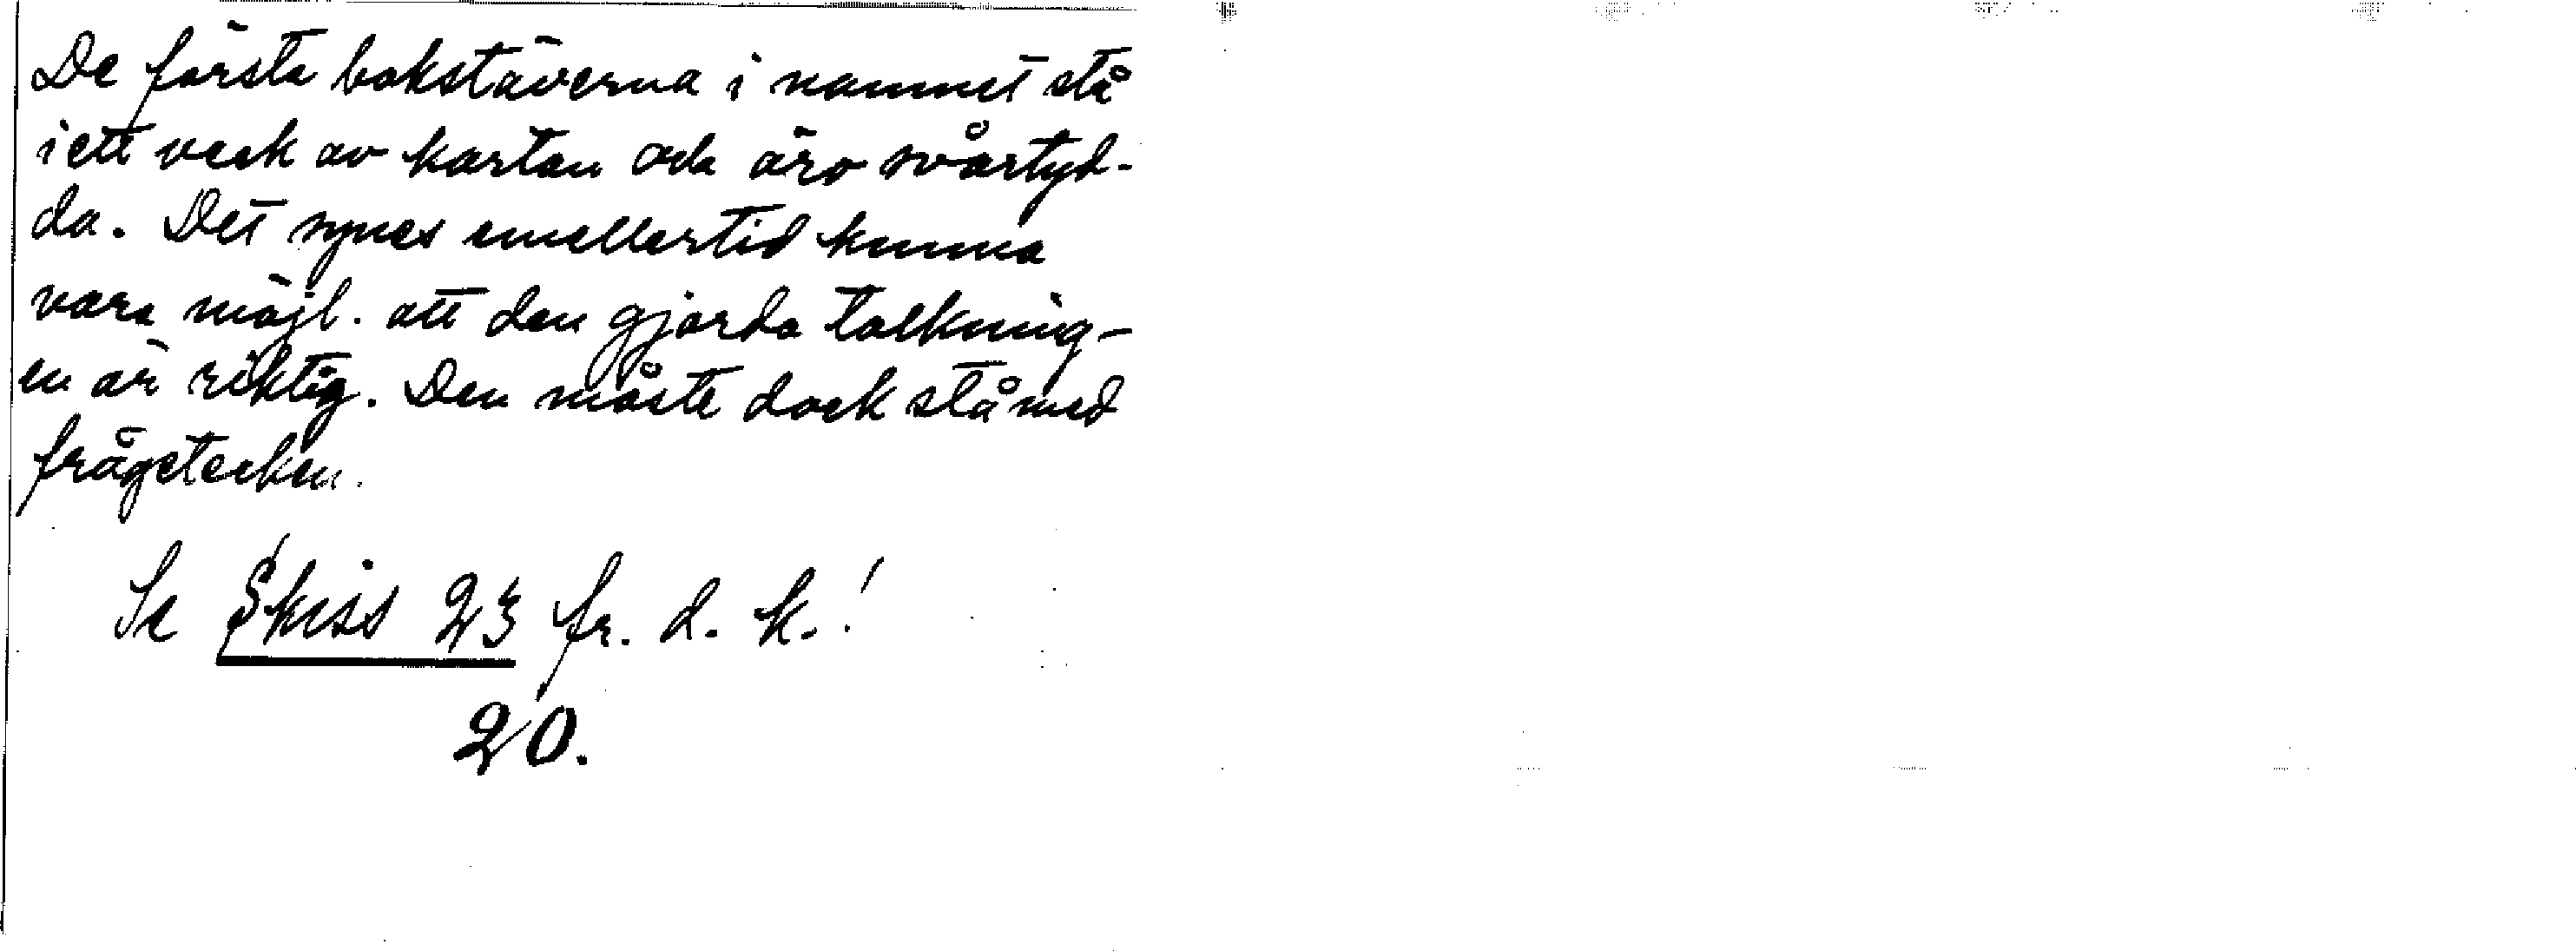 De första bokstäverna i namnet stå
i ett veck av kartan och äro svårtyd-
da. Det synes emellertid kunna
vara möjl. att den gjorda tolkning-
en är riktig. Den måste dock stå med
frågetecken.
Se Skiss 23 fr. d. k.!
20.